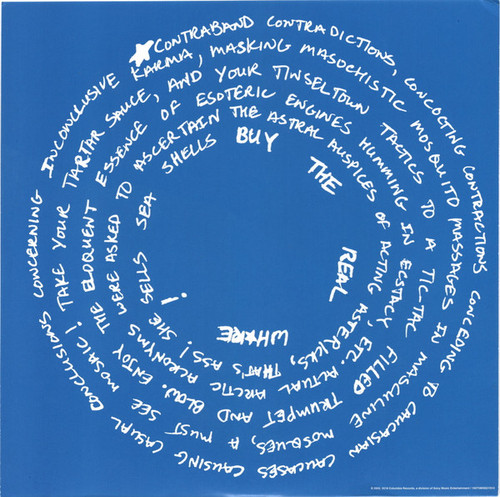 CONTRABAND CONTRADICTIONS, CONCOCTING CONTRACTIONS CONCEDING TO CAUCASIAN CAUCASES CAUSING CASUAL CONCLUSIONS CONCERNING INCONCLUSIVE
KARMA, MASKING MASOCHISTIC MOSQUITO MASSAUES IN MASCULINE MOSQUES, A MUST SEE MOSAIC! TAKE YOUR TARTAR
SAUCE, AND YOUR TINSELTOWN TACTICS TO A TIC-TAC FILLED TRUMPET AND BLOW. ENJOY THE ELOQUENT
ESSENCE OF ESOTERIC ENGINES HUMMING IN ECSTACY, ETC. ACTUAL ARCTIC ACRONYMS WERE ASKED TO
ASCERTAIN THE ASTRAL AUSPICES OF ACTING ASTERICKS, THAT'S ASS! SHE SELLS SEA
SHELLS BUY THE REAL WHARE!
Columbia Records, a division of Sony Music Entertainment